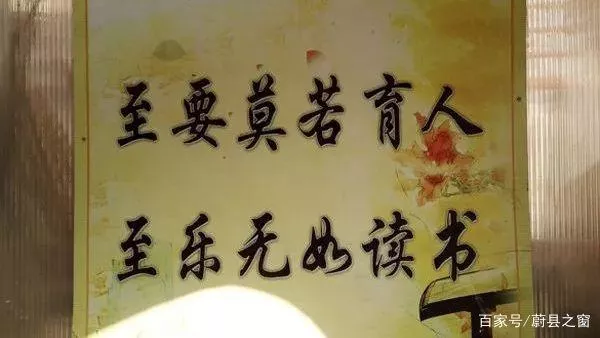 至要莫若育人
至乐无如读书
百家号/蔚县之窗